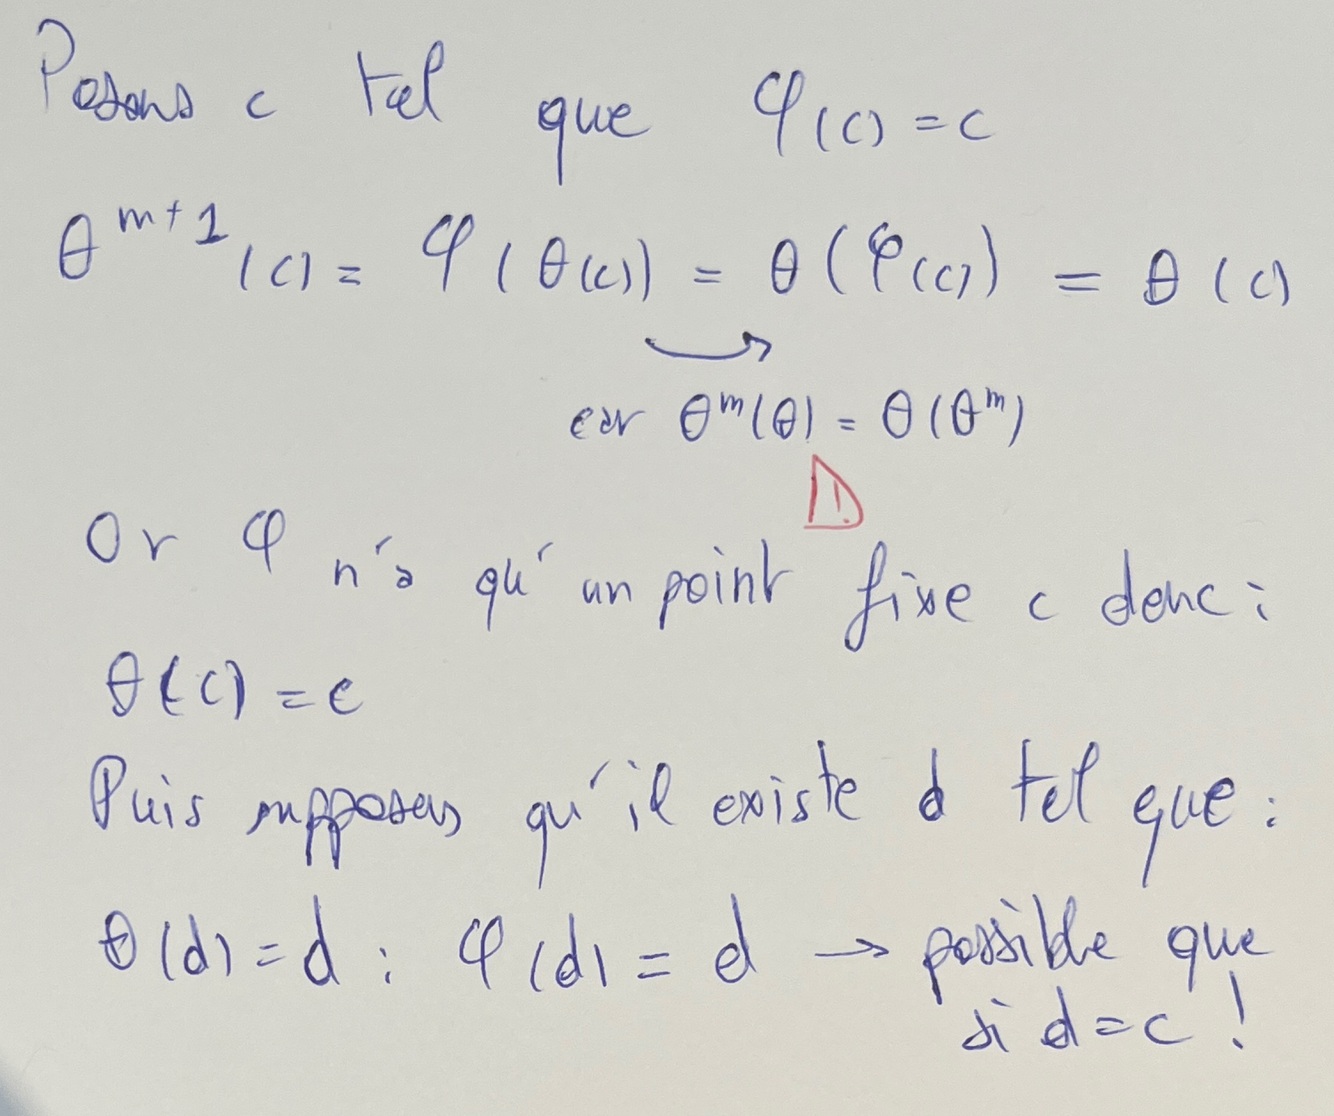 Posons c tel que φ(c) = c
θ^{m+1}(c) = φ(θ(c)) = θ(φ(c)) = θ(c)
car θ^m(θ) = θ(θ^m)
!
Or φ n'a qu'un point fixe c donc :
θ(c) = c
Puis supposons qu'il existe d tel que :
θ(d) = d : φ(d) = d → possible que
si d = c !